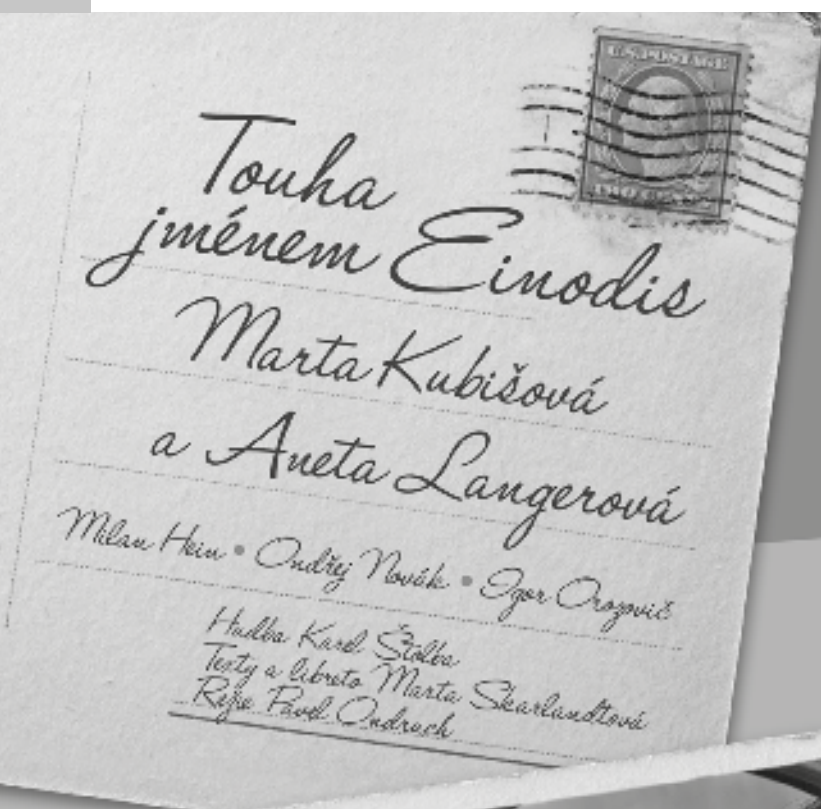 U.S.POSTAGE
Touha
jménem Einodis
Marta Kubišová
a Aneta Langerová
Milan Hein • Ondřej Novák • Igor Orozovič
Hudba Karel Štolba
Texty a libreto Marta Skarlandtová
Režie Pavel Ondruch